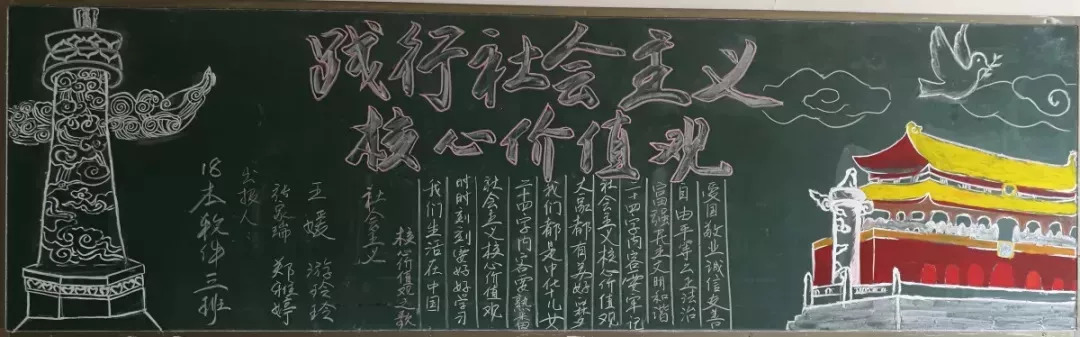 践行社会主义
核心价值观
社会主义
核心价值观之歌
我们生活在中国
时时刻刻要好好学习
社会主义核心价值观
二十四字内容要熟
我们都是中华儿女
都有美好梦
社会主义核心价值观
二十四字内容要牢记
富强民主文明和谐
自由平等公正法治
爱国敬业诚信友善
18本软件三班
出报人
张家瑞 郑雅婷
王媛 游玲玲